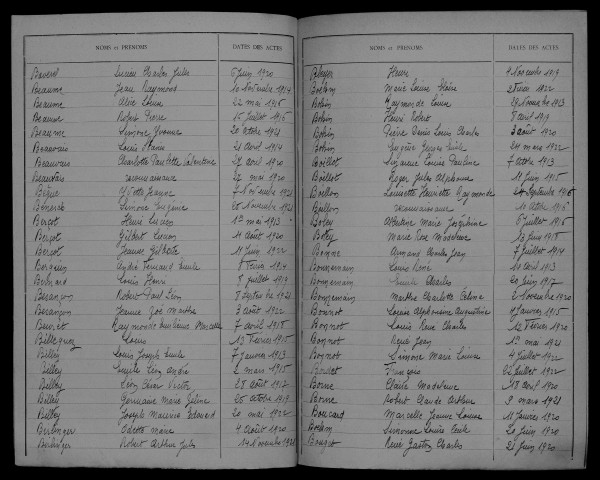 NOMS et PRENOMS DATES DES ACTES
Bavard Lucien Charles Jules 6 Juin 1920
Beaume Jean Raymond 10 Novembre 1914
Beaume Alice 22 mai 1916
Beaune Robert Pierre 15 Juillet 1916
Beaune Simone Yvonne 20 Octobre 1921
Beauvais Louis 21 Avril 1914
Beauvais Charlotte Paulette Valentine 24 avril 1920
Beauvais reconnaissance 20 mai 1920
Bègue Odette Jeanne 7 Novembre 1921
Simone Eugénie 26 Novembre 1921
Bergot Henri Lucien 1er mai 1913
Bergot Gilbert Lucien 11 Août 1920
Bergot Jeanne Gilberte 11 Juin 1922
André Fernand Emile 8 Février 1914
Bernard Louis Henri 8 Juillet 1919
Besançon Robert Paul Léon 8 Septembre 1921
Besançon Jeanne Zoé Marthe 3 août 1922
Raymonde Marcelle 7 avril 1915
Louis 13 Février 1915
Billey Louis Joseph Emile 7 Janvier 1913
Billey Emile Léon André 2 mars 1915
Billey Léon César Victor 28 Août 1917
Billey Germaine Marie 26 octobre 1919
Billey Joseph Maurice Edouard 20 mai 1922
Berlinger Odette Marie 4 Août 1920
Berlinger Robert Arthur Jules 14 Novembre 1921
NOMS et PRENOMS DATES DES ACTES
Henri 4 Novembre 1919
Marie Louise 2 Février 1922
Bobin Raymonde Louise 29 Novembre 1913
Bobin Henri Robert 8 avril 1919
Bobin Pierre Denis Louis Charles 3 août 1920
Bobin Eugène Emile 24 mars 1922
Boillot Suzanne Louise Pauline 7 octobre 1913
Boillot Roger Jules Alphonse 11 Juin 1915
Boillon Louisette Henriette Raymonde 24 Septembre 1916
Boillon reconnaissance 11 Octobre 1916
Albertine Marie Joséphine 6 Juillet 1916
Marie Rose Madeleine 13 Juin 1918
Bonne Armand Charles Jean 7 Juillet 1914
Bonnemain Louis René 10 avril 1913
Bonnemain Emile Charles 20 Juin 1917
Bonnemain Marthe Charlotte Céline 2 Novembre 1920
Bonnot Louise Alphonsine Augustine 9 Janvier 1915
Bonnot Louis René Charles 12 Février 1920
Bonnot René Jean 1er mai 1921
Bonnot Simone Marie Louise 4 Juillet 1922
François 22 Juillet 1922
Borne Claire Madeleine 18 avril 1920
Borne Robert Claude Arthur 9 mars 1921
Boucard Marcelle Jeanne Louise 11 Janvier 1920
Simonne Louise 20 Juin 1920
Bouget René Gaston Charles 21 Juin 1920